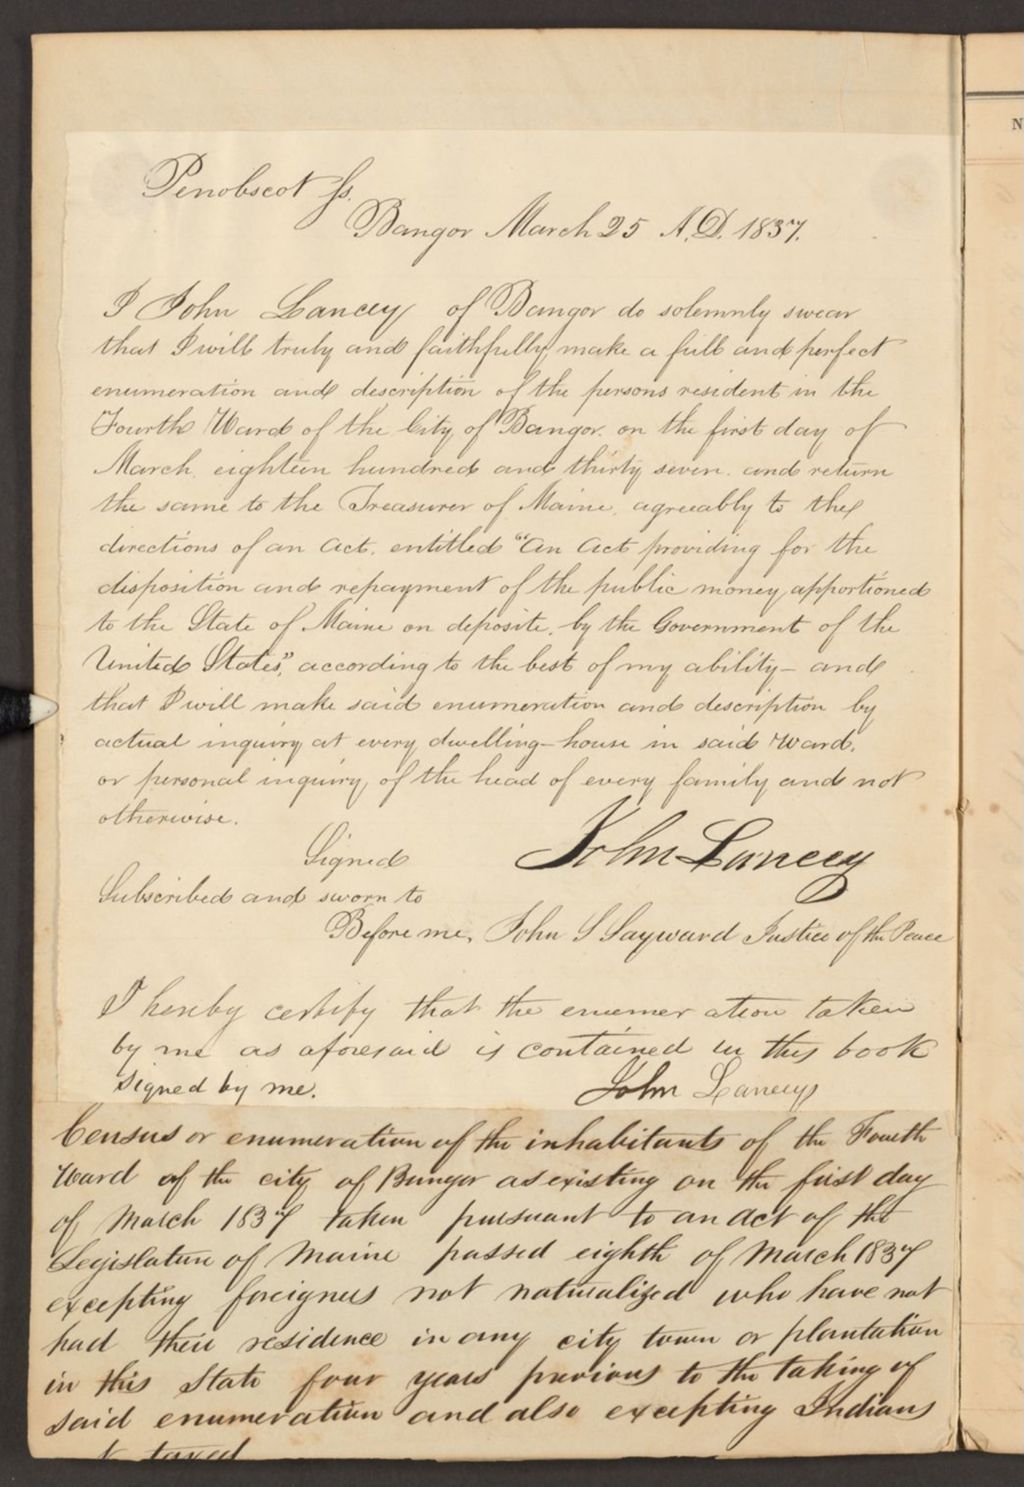 Penobscot ss.
Bangor March 25 A.D. 1837.
I John Lancey of Bangor do solemnly swear
that I will truly and faithfully make a full and perfect
enumeration and description of the persons resident in the
Fourth Ward of the City of Bangor. on the first day of
March eighteen hundred and thirty seven. and return
the same to the Treasurer of Maine, agreeably to the
directions of an Act. entitled "An Act providing for the
disposition and repayment of the public money, apportioned
to the State of Maine on deposite, by the Government of the
United States", according to the best of my ability - and
that I will make said enumeration and description by
actual inquiry at every dwelling-house in said Ward,
or personal inquiry, of the head of every family and not
otherwise.
Signed John Lancey
Subscribed and sworn to
Before me, John S Sayward Justice of the Peace
I hereby certify that the enumeration taken
by me as aforesaid is contained in this book
signed by me. John Lancey
Census or enumeration of the inhabitants of the Fourth
Ward of the city of Bangor as existing on the first day
of March 1837 taken pursuant to an Act of the
Legislature of Maine passed eighth of March 1837
excepting foreigners not naturalized who have not
had their residence in any city town or plantation
in this State four years previous to the taking of
said enumeration and also excepting Indians
taxed
N